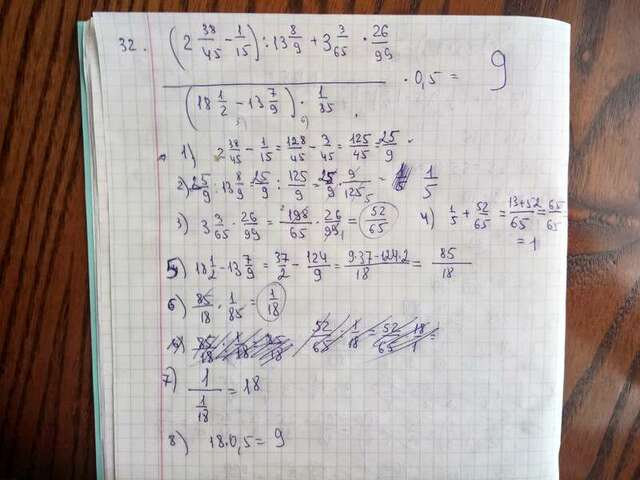 32.
(2 38/45 - 1/15) : 13 8/9 + 3 3/65 · 26/99
(18 1/2 - 13 7/9) · 1/85
· 0,5 = 9
1) 2 38/45 - 1/15 = 128/45 - 3/45 = 125/45 = 25/9
2) 25/9 : 13 8/9 = 25/9 : 125/9 = 25/9 · 9/125 = 1/5
3) 3 3/65 · 26/99 = 198/65 · 26/99 = 52/65
4) 1/5 + 52/65 = 13+52/65 = 65/65 = 1
5) 18 1/2 - 13 7/9 = 37/2 - 124/9 = 9·37-124·2/18 = 85/18
6) 85/18 · 1/85 = 1/18
7) 1/(1/18) = 18
8) 18·0,5 = 9